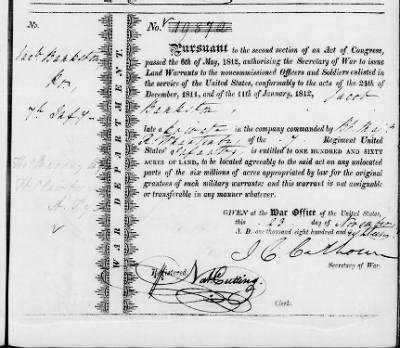 No.
No.
Jacob Bankston
7th Infy
WAR DEPARTMENT.
Pursuant to the second section of an Act of Congress,
passed the 6th of May, 1812, authorising the Secretary of War to issue
Land Warrants to the noncommissioned Officers and Soldiers enlisted in
the service of the United States, conformably to the acts of the 24th of
December, 1811, and of the 11th of January, 1812, Jacob
Bankston,
late a private in the company commanded by
of the 7 Regiment United
States' Infantry is entitled to ONE HUNDRED AND SIXTY
ACRES OF LAND, to be located agreeably to the said act on any unlocated
parts of the six millions of acres appropriated by law for the original
grantees of such military warrants; and this warrant is not assignable
or transferable in any manner whatever.
GIVEN at the War Office of the United States,
this 23 day of November
A. D. one thousand eight hundred and
J C Calhoun
Secretary of War.
Registered
Nat Cutting
Clerk.